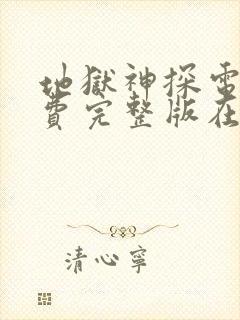 地獄神探電
費完整版在
清心寧